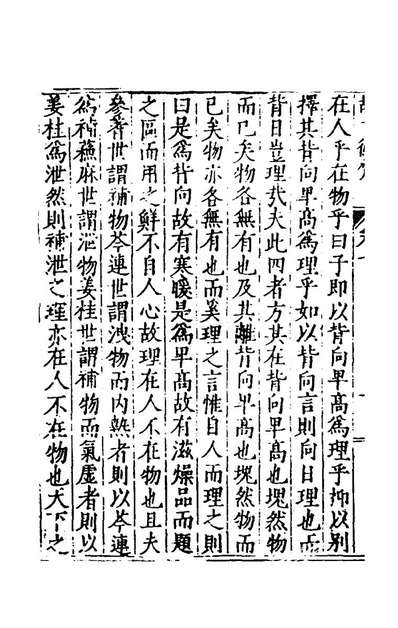 在人乎在物乎曰子即以背向卑高爲理乎抑以别
擇其背向卑高爲理乎如以背向言則向日理也而
背日豈理哉夫此四者方其在背向卑高也塊然物
而已矣物各無有也及其離背向卑高也塊然物而
已矣物亦各無有也而奚理之言惟自人而理之則
曰是爲背向故有寒暖是爲卑高故有滋燥品而題
之區而用之鮮不自人心故理在人不在物也且夫
參蓍世謂補物芩連世謂洩物而内熱者則以芩連
爲補蘇麻世謂泄物姜桂世謂補物而氣虚者則以
姜桂爲泄然則補泄之理亦在人不在物也天下之